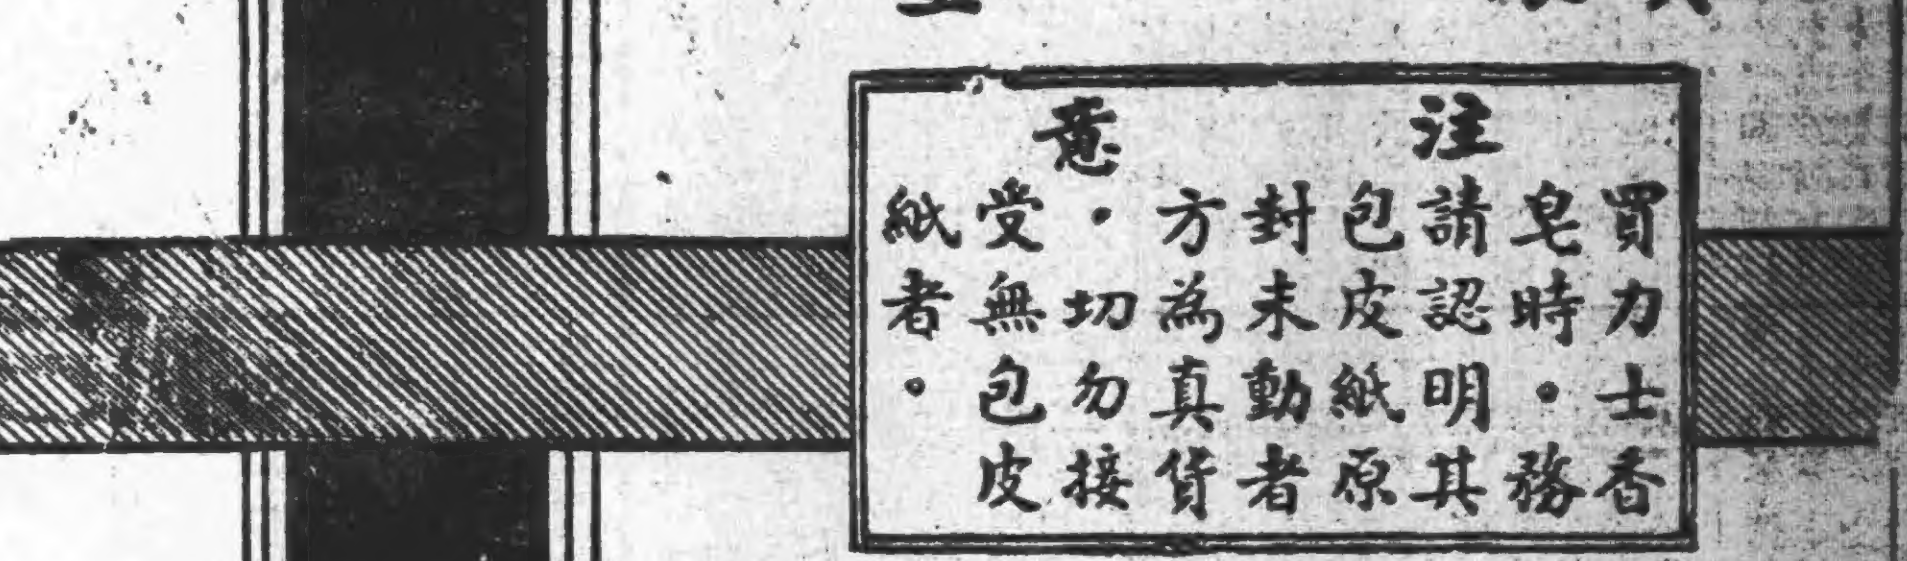 注意
買力士香
皂時。務
請認明其
包皮紙原
封未動者
方為真貨
・切勿接
受無包皮
紙者。